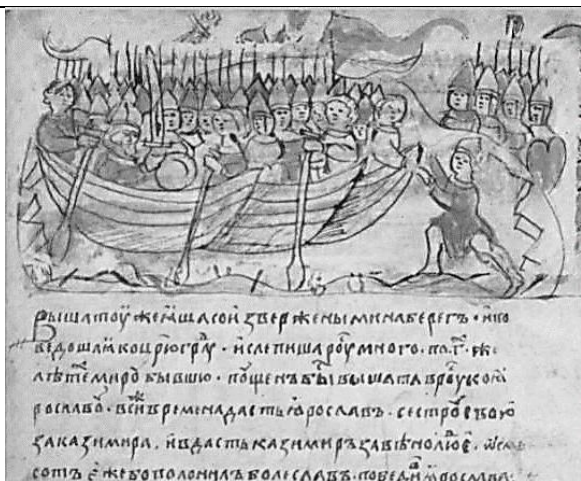 Вышатоу же ꙗша со извержеными на берегъ · и при
ведоша ꙗ ко црюгрⷣоу · и слепиша роуⷭ много · по г҃ · же
летеⷯ мироу бывшю · поущенъ быⷭ вышата в роуⷭ ко ꙗ
рославоу · в сиⷤ времена дасть ꙗрославъ · сестроу свою
за казимира, и вдасть казимиръ за вено люⷣе · осмь
сотъ еже бо полонилъ болеславъ · победивъ ꙗрослава ·